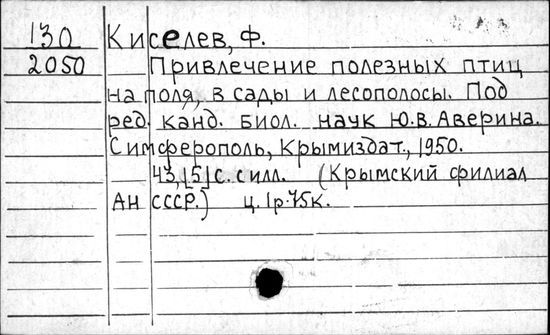 130 Киселев, Ф.
2050 Привлечение полезных птиц
на поля, в сады и лесополосы. Под
ред. канд. биол. наук Ю.В. Аверина.
Симферополь, Крымиздат., 1950.
43,[5] с. с илл. (Крымский филиал
АН СССР.) ц. 1р.75к.